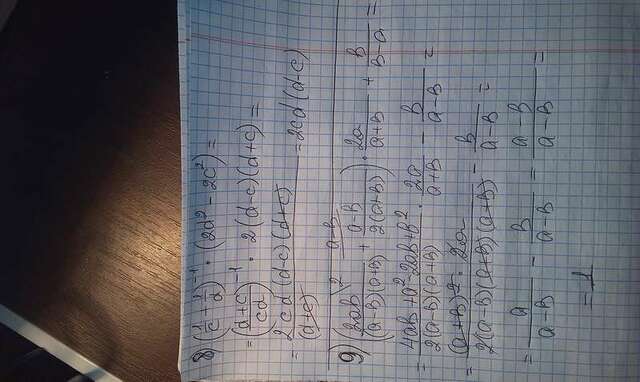 8) (1/c + 1/d)^-1 · (2d² - 2c²) =
= ((d+c)/cd)^-1 · 2(d-c)(d+c) =
= 2cd(d-c)(d+c)/(d+c) = 2cd(d-c)
9) (2ab\2/((a-b)(a+b)) + a-b\a-b/(2(a+b))) · 2a/(a+b) + b/(b-a) =
= (4ab+a²-2ab+b²)/(2(a-b)(a+b)) · 2a/(a+b) - b/(a-b) =
= (a+b)² · 2a/(2(a-b)(a+b)(a+b)) - b/(a-b) =
= a/(a-b) - b/(a-b) = (a-b)/(a-b) =
= 1